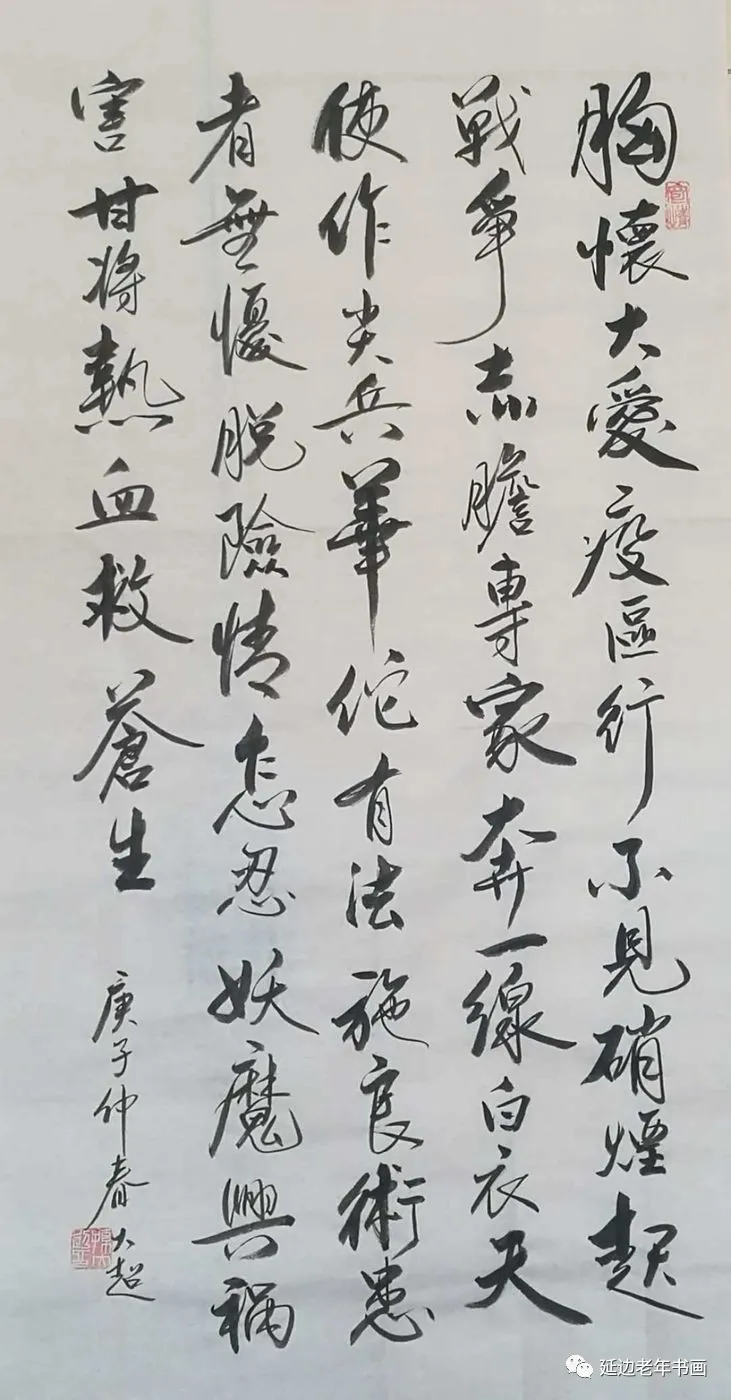 胸懷大愛疫區行不見硝煙起
戰爭赤膽專家奔一線白衣天
使作尖兵華佗有法施良術患
者無懮脱險情怎忍妖魔興禍
害甘將熱血救蒼生
庚子仲春大超
延边老年书画